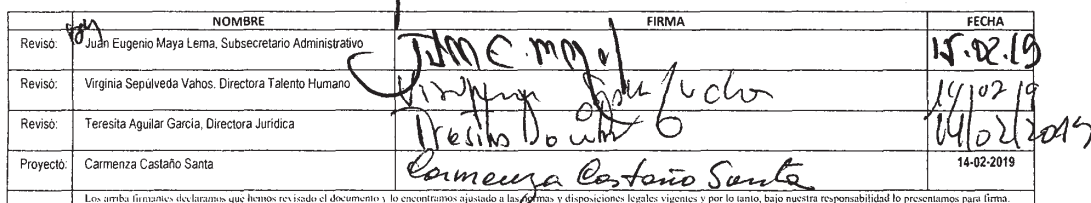 NOMBRE FIRMA FECHA
Revisó: Juan Eugenio Maya Lema, Subsecretario Administrativo 15.02.19
Revisó: Virginia Sepúlveda Vahos, Directora Talento Humano 14/02/19
Revisó: Teresita Aguilar García, Directora Jurídica 14/02/2019
Proyectó: Carmenza Castaño Santa Carmenza Castaño Santa 14-02-2019
Los arriba firmantes declaramos que hemos revisado el documento y lo encontramos ajustado a las normas y disposiciones legales vigentes y por lo tanto, bajo nuestra responsabilidad lo presentamos para firma.